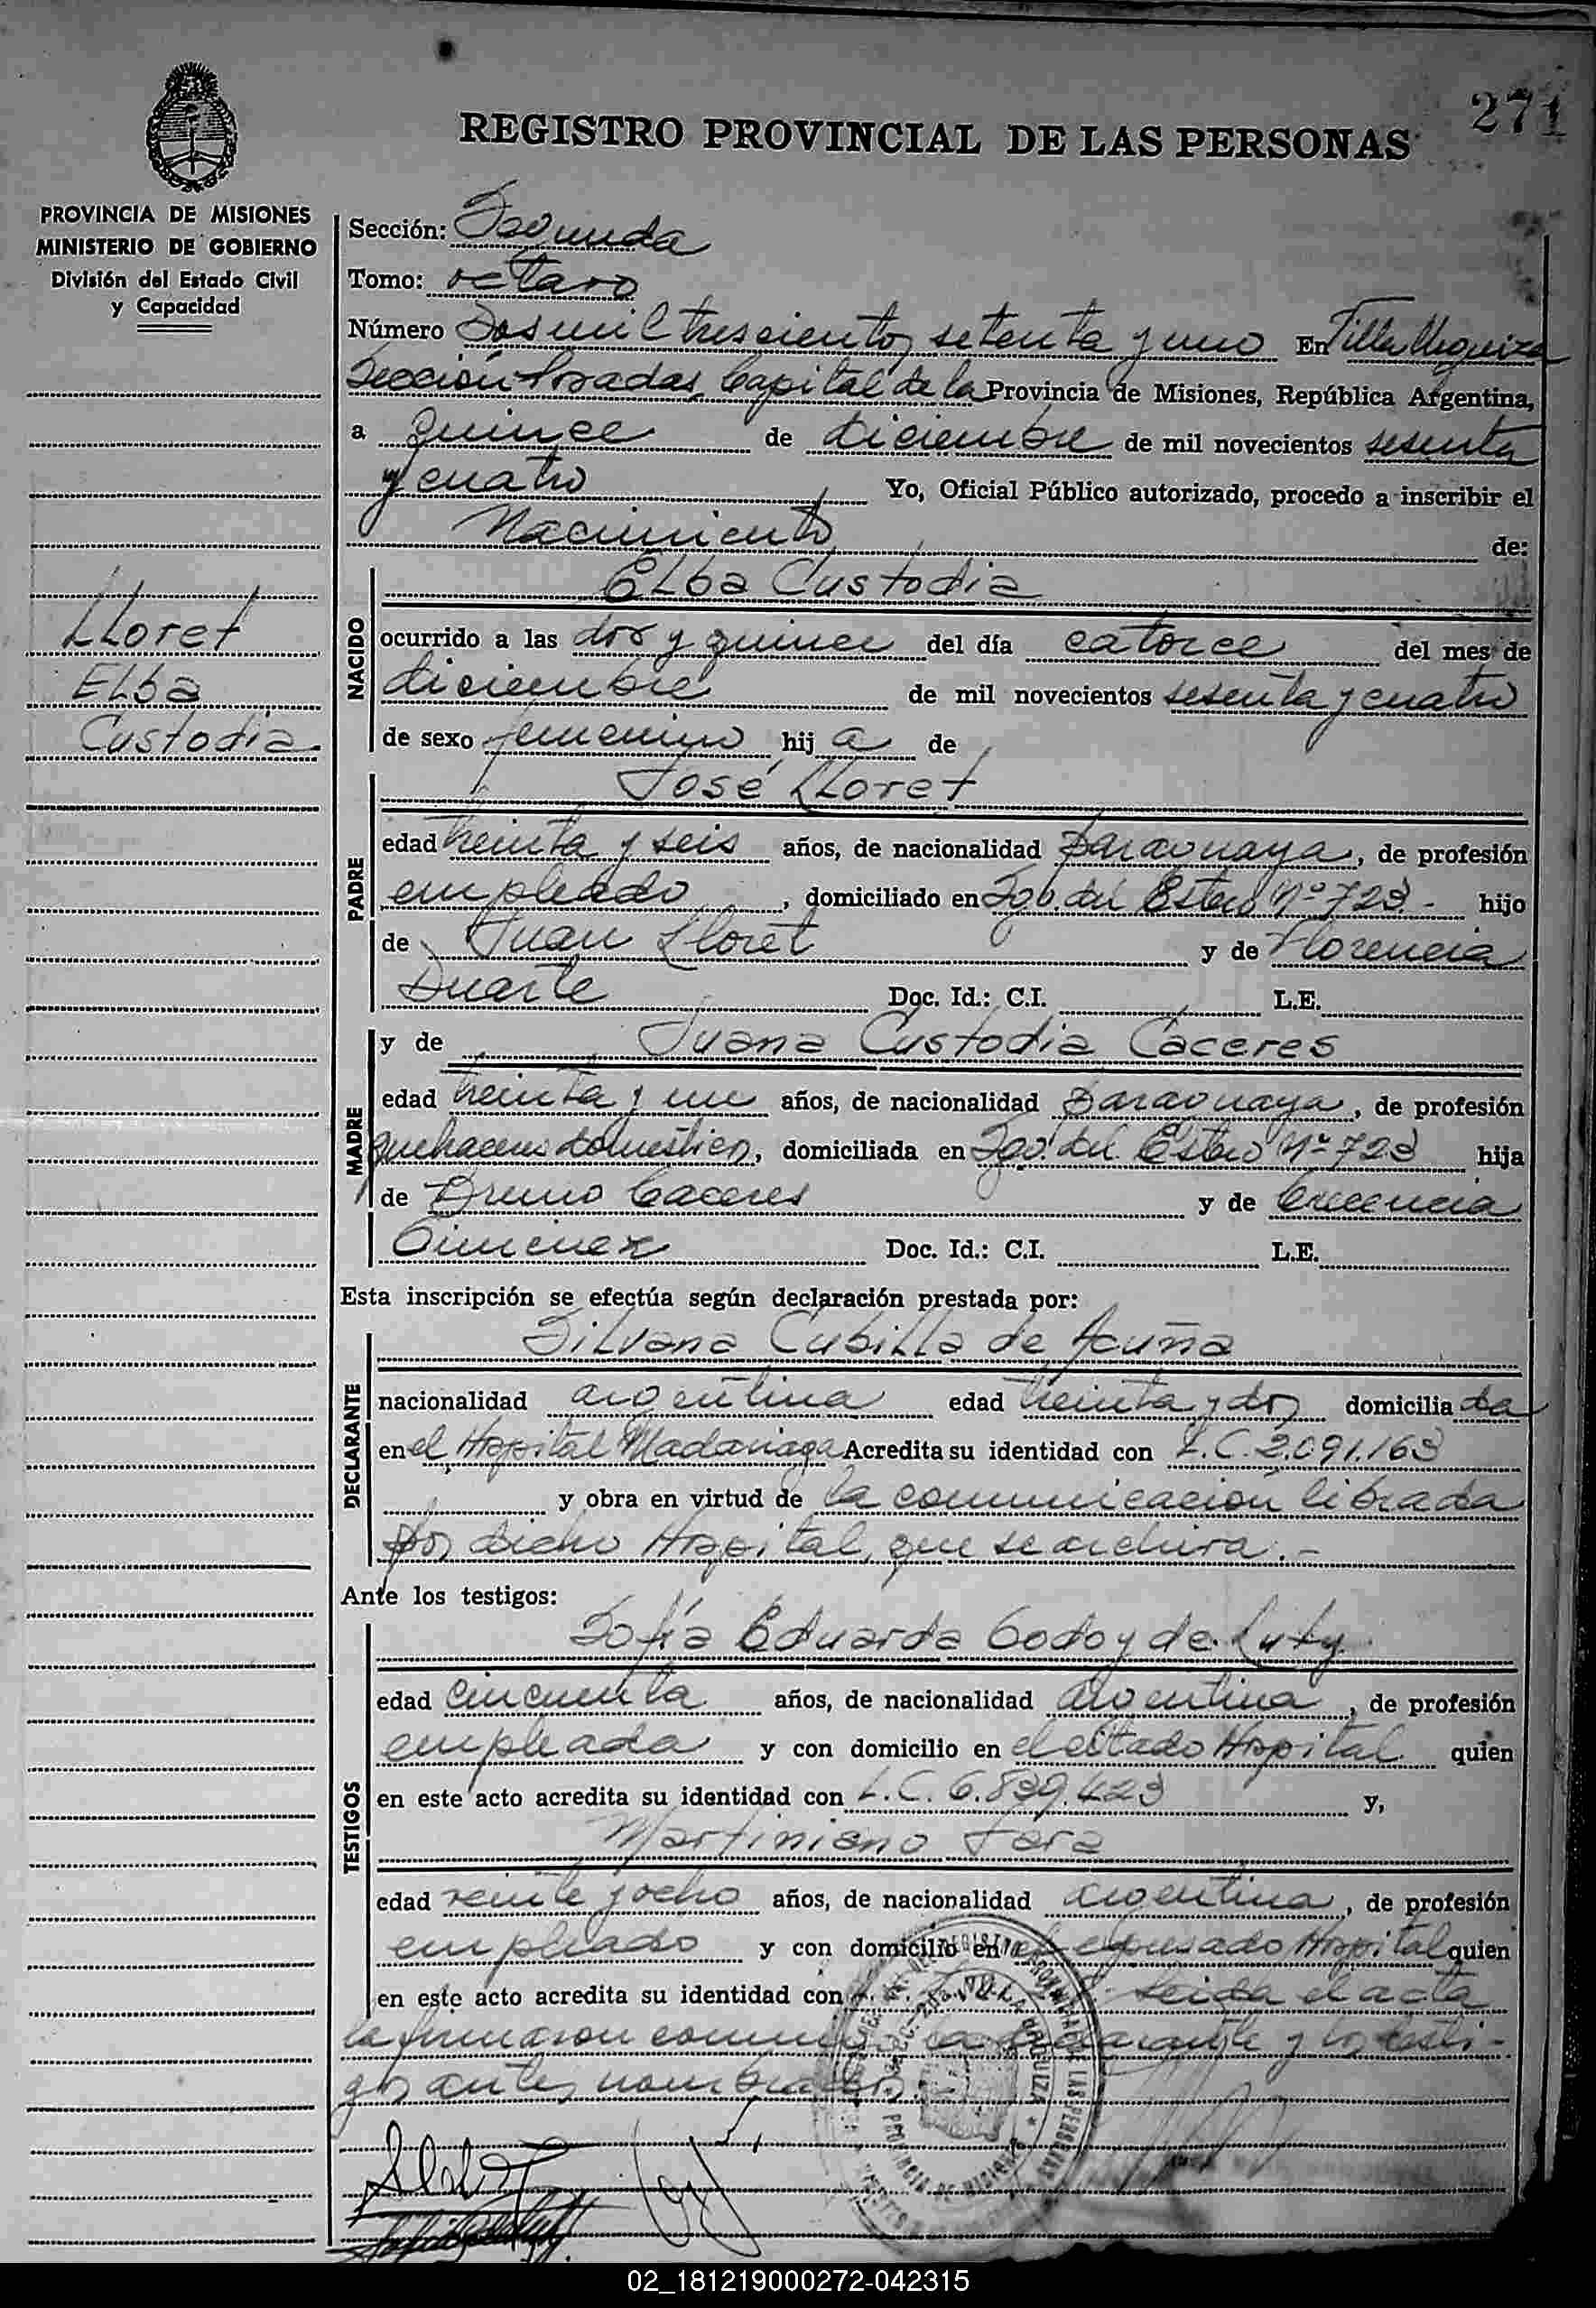 271
REGISTRO PROVINCIAL DE LAS PERSONAS
PROVINCIA DE MISIONES
MINISTERIO DE GOBIERNO
División del Estado Civil
y Capacidad
Lloret
Elba
Custodia
Sección: Segunda
Tomo: octavo
Número Dos mil trescientos setenta y uno En Villa Urquiza
Sección Posadas, Capital de la Provincia de Misiones, República Argentina,
a quince de diciembre de mil novecientos sesenta
y cuatro Yo, Oficial Público autorizado, procedo a inscribir el
Nacimiento de:
NACIDO
Elba Custodia
ocurrido a las dos y quince del día catorce del mes de
diciembre de mil novecientos sesenta y cuatro
de sexo femenino hija de
PADRE
José Lloret
edad treinta y seis años, de nacionalidad paraguaya, de profesión
empleado, domiciliado en Sgo. del Estero Nº 723.- hijo
de Juan Lloret y de Florencia
Duarte Doc. Id.: C.I. L.E.
MADRE
y de Juana Custodia Cáceres
edad treinta y un años, de nacionalidad paraguaya, de profesión
quehaceres domésticos, domiciliada en Sgo. del Estero Nº 723 hija
de Bruno Caceres y de Crecencia
Gimenez Doc. Id.: C.I. L.E.
Esta inscripción se efectúa según declaración prestada por:
DECLARANTE
Silvana Cubilla de Acuña
nacionalidad argentina edad treinta y dos domiciliada
en el Hospital Madariaga Acredita su identidad con L.C. 2.091.163
y obra en virtud de la comunicación librada
por dicho Hospital, que se archiva.-
Ante los testigos:
TESTIGOS
Sofía Eduarda Godoy de Luty
edad cincuenta años, de nacionalidad argentina, de profesión
empleada y con domicilio en el citado Hospital quien
en este acto acredita su identidad con L.C. 6.839.423 y,
Martiniano Jara
edad veinte y ocho años, de nacionalidad argentina, de profesión
empleado y con domicilio en el expresado Hospital quien
en este acto acredita su identidad con Leida el acta
la firmaron conmigo la declarante y los testi-
gos antes nombrados
02_181219000272-042315